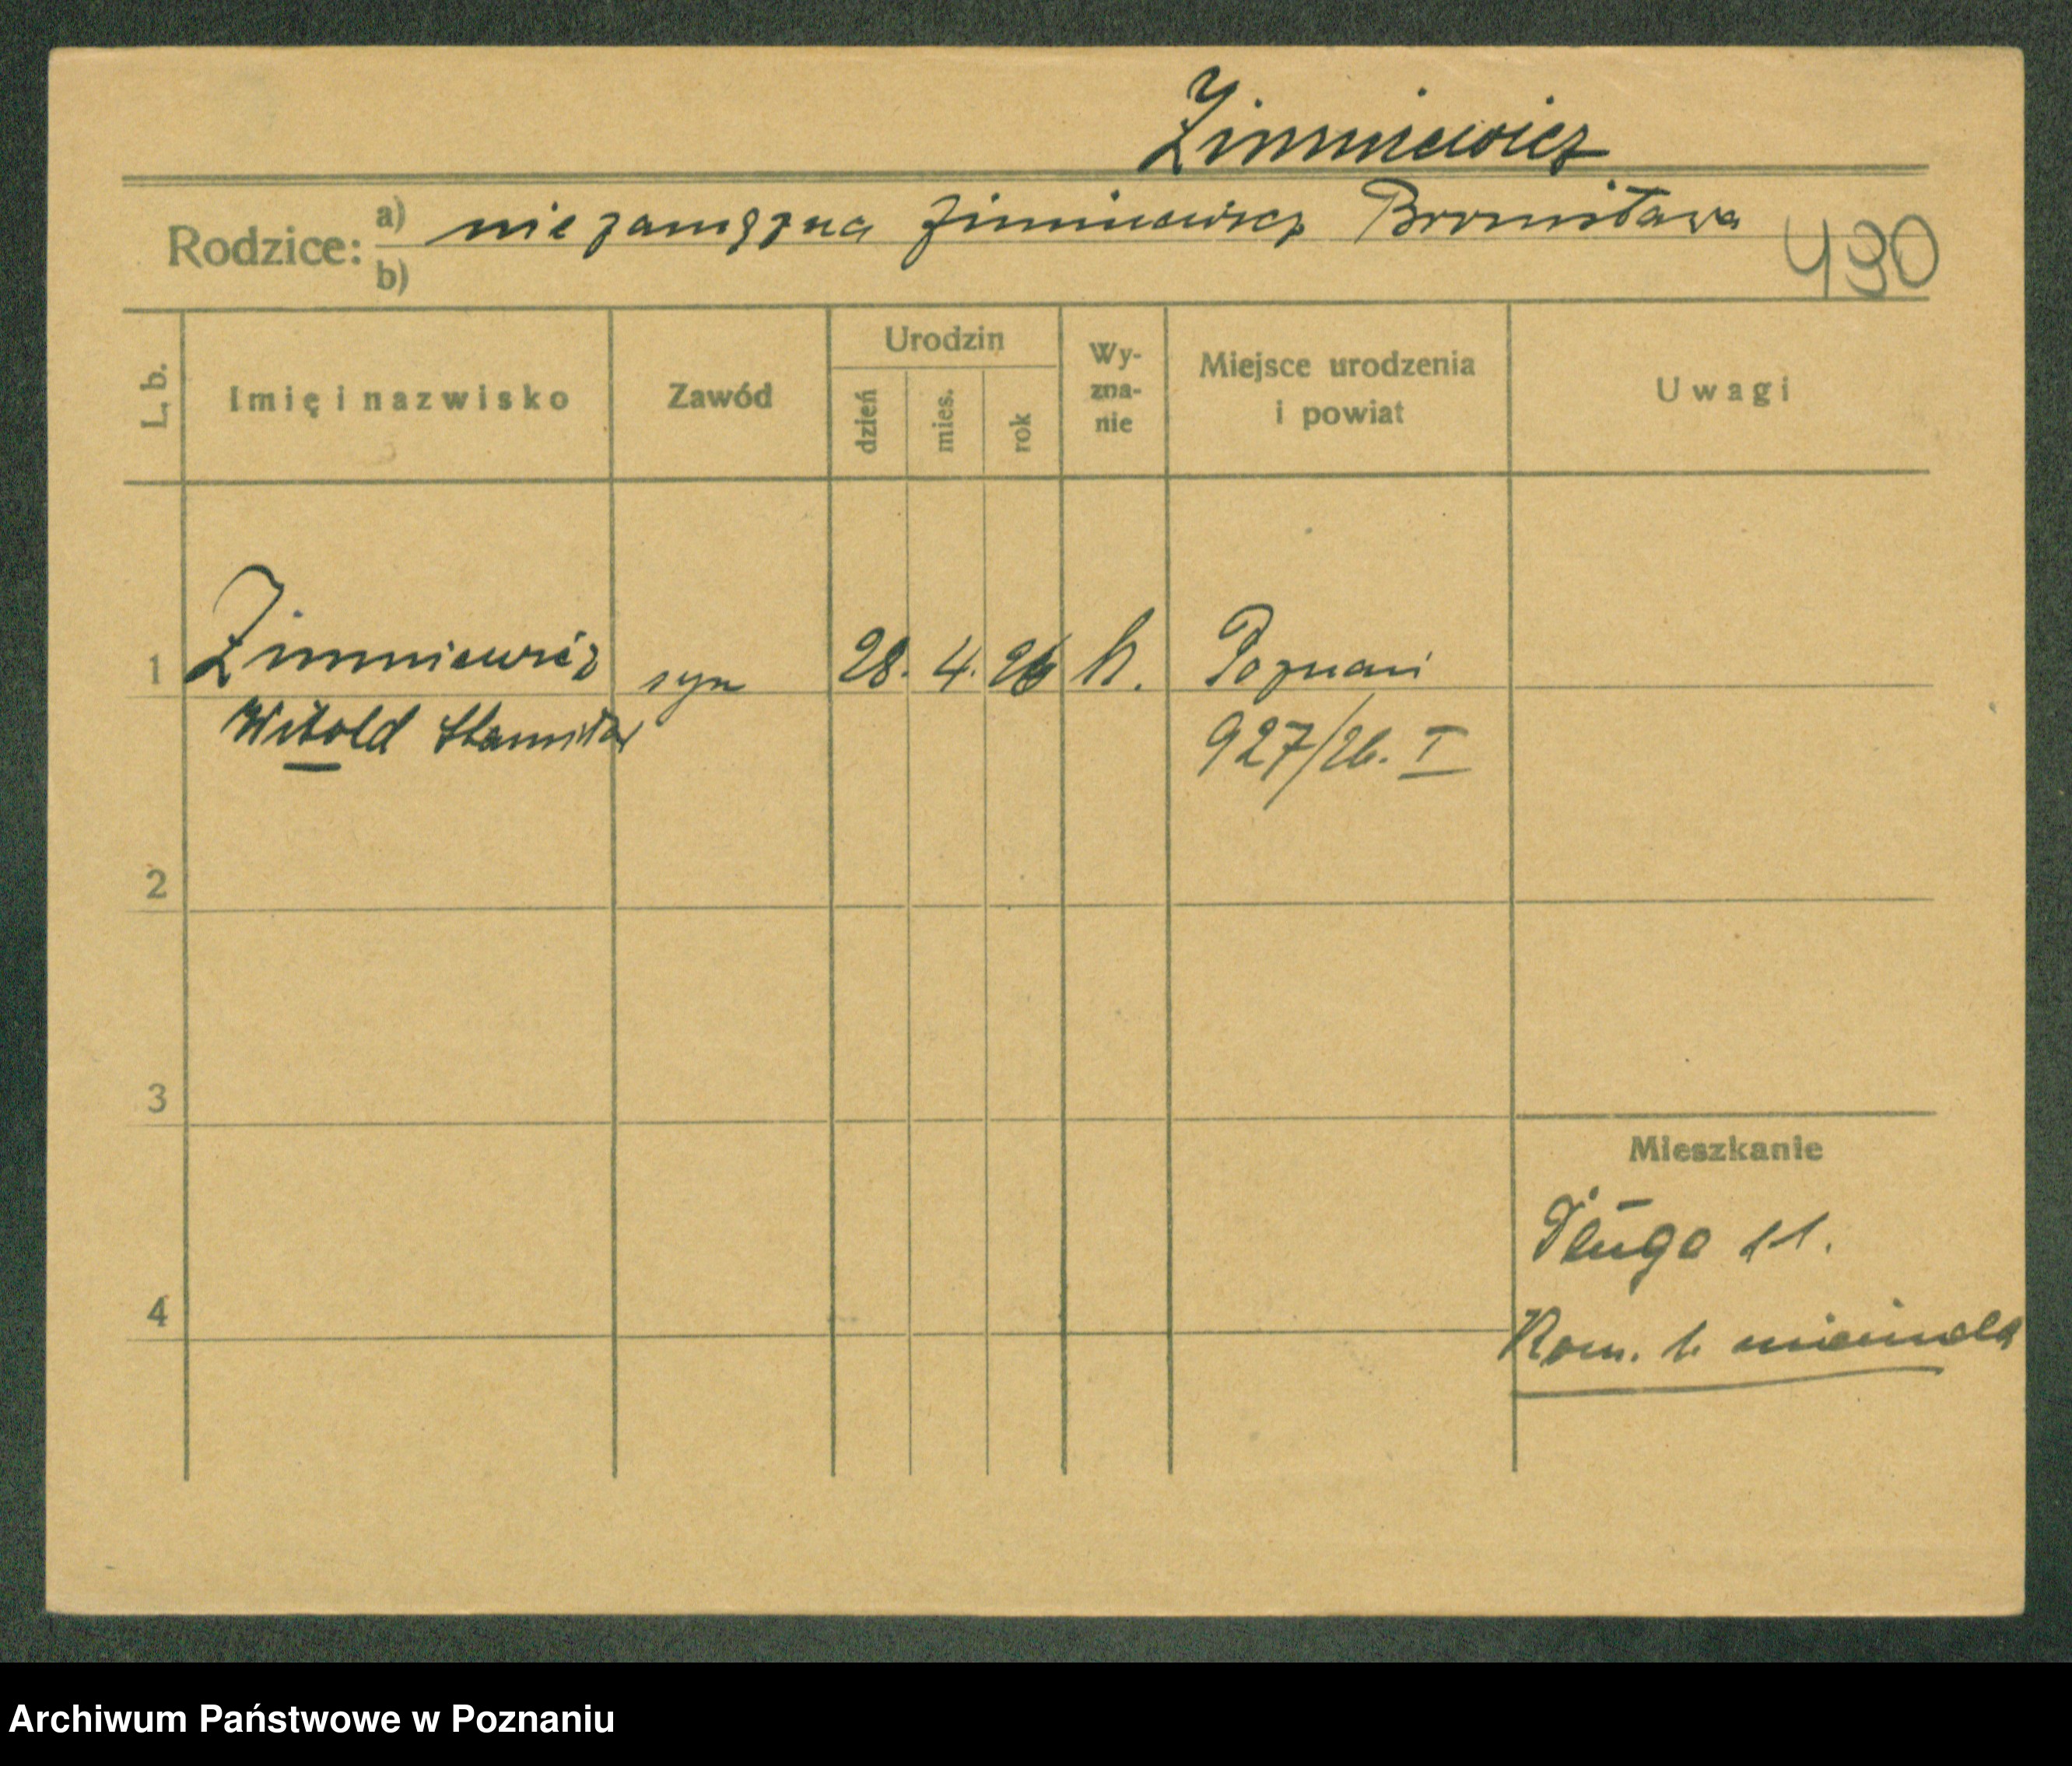 Zimniewicz
Rodzice: a) niezamężna Zimniewicz Bronisława
b)
430
L. b.
Imię i nazwisko
Zawód
Urodzin
dzień
mies.
rok
Wy-
zna-
nie
Miejsce urodzenia
i powiat
Uwagi
1 Zimniewicz syn 28. 4. 26 k. Poznań
Witold Stanisław
927/26. I
2
3
Mieszkanie
Długa 11.
4
Kom.
Archiwum Państwowe w Poznaniu